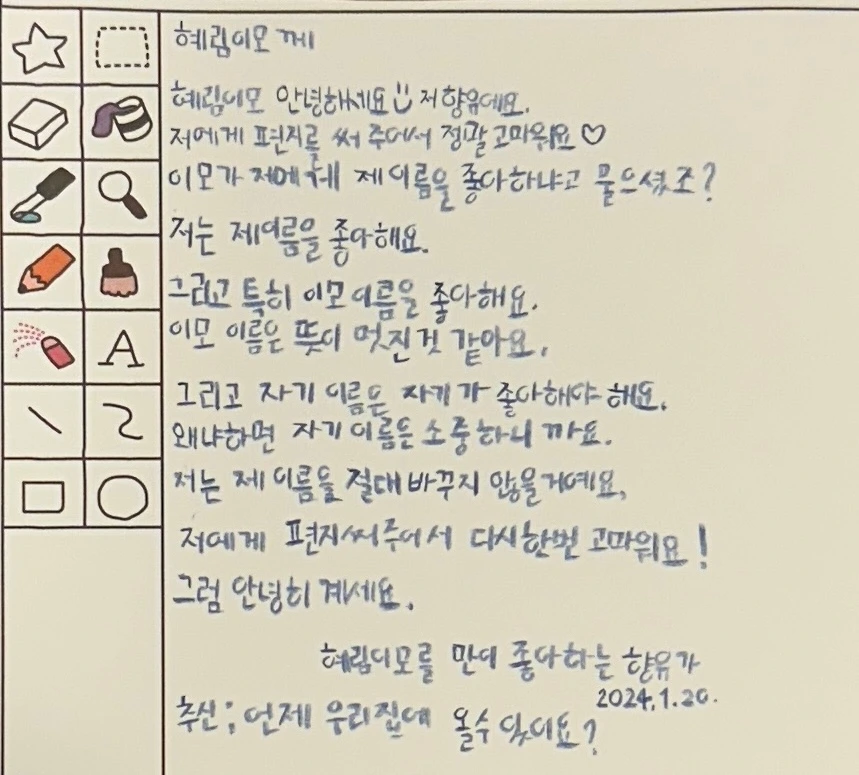 혜림이모 께
혜림이모 안녕하세요 저 향유예요.
저에게 편지를 써 주어서 정말 고마워요♡
이모가 저에게 제 이름을 좋아하냐고 물으셨죠?
저는 제이름을 좋아해요.
그리고 특히 이모 이름을 좋아해요.
이모 이름은 뜻이 멋진것 같아요.
그리고 자기 이름은 자기가 좋아해야 해요.
왜냐하면 자기 이름은 소중하니 까요.
저는 제 이름을 절대 바꾸지 않을거예요.
저에게 편지써주어서 다시한번 고마워요!
그럼 안녕히 계세요.
혜림이모를 만이 좋아하는 향유가
2024.1.20.
추신; 언제 우리집에 올수 있어요?
A